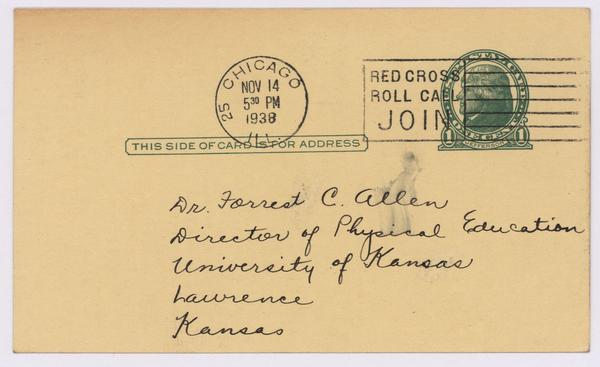 25 CHICAGO ILL.
NOV 14
5 30 PM
1938
RED CROSS
ROLL CALL
JOIN
1 JEFFERSON 1
THIS SIDE OF CARD IS FOR ADDRESS
Dr. Forrest C. Allen
Director of Physical Education
University of Kansas
Lawrence
Kansas